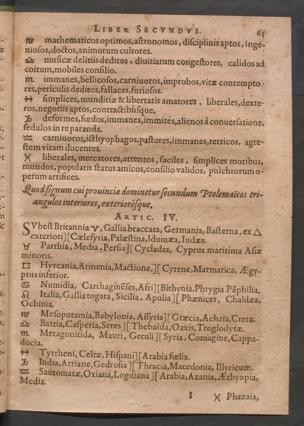 LIBER SECVNDVS. 65
♍ mathematicos optimos, astronomos, disciplinis aptos, inge-
niosos, doctos, animorum cultores.
♎ musicæ delitiis deditos, diuitiarum congestores, calidos ad
coitum, mobiles consilio.
♏ immanes, bellicosos, carniuoros, improbos, vitæ contempto
res, periculis deditos, fallaces, furiosos.
♐ simplices, munditiæ & libertatis amatores, liberales, dexte-
ros, negotiis aptos, contractibúsque.
♑ deformes, fœdos, immanes, immites, alienos à conuersatione,
sedulos in re paranda.
♒ carniuoros, icthyophagos, pastores, immanes, tetricos, agre-
stem vitam ducentes.
♓ liberales, mercatores, attentos, faciles, simplices moribus,
mundos, popularis status amicos, consilio validos, pulchrorum o-
perum artifices.
Quod signum cui prouinciæ dominetur secundum Ptolemaïcos tri-
angulos interiores, exteriorésque,
ARTIC. IV.
SVbest Britannia ♈, Gallia braccata, Germania, Basterna, ex △
exteriori ][ Cælesyria, Palæstina, Idumæa, Iudæa.
♉ Parthia, Media, Persia ][ Cyclades, Cyprus maritima Asiæ
minoris.
♊ Hyrcania, Armenia, Mactione, ][ Cyrene, Marmarica, Ægy-
ptus inferior.
♋ Numidia, Carthaginẽses, Afri ][ Bithynia, Phrygia Pãphilia,
♌ Italia, Gallia togata, Sicilia, Apulia ][ Phœnices, Chaldæa,
Ochinia.
♍ Mesopotamia, Babylonia, Assyria ][ Græcia, Achaia, Creta.
♎ Batria, Casperia, Seres ][ Thebaïda, Oaxis, Troglodytæ.
♏ Metagonitida, Mauri, Getuli ][ Syria, Comagine, Cappa-
docia.
♐ Tyrrheni, Celtæ, Hispani ][ Arabia fœlix.
♑ India, Arriane, Gedrosia ][ Thracia, Macedonia, Illyricum.
♒ Sauromatæ, Oxiana, Logdiana ][ Arabia, Azania, Æthyopia,
Media.
I ♓ Phazaia,